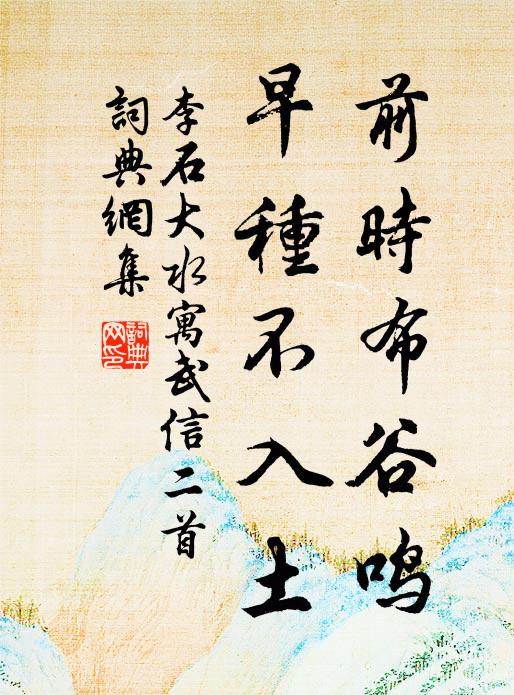 前時布谷鳴
早種不入土
李石大水寓武信二首
詞典網集
詞典
网印